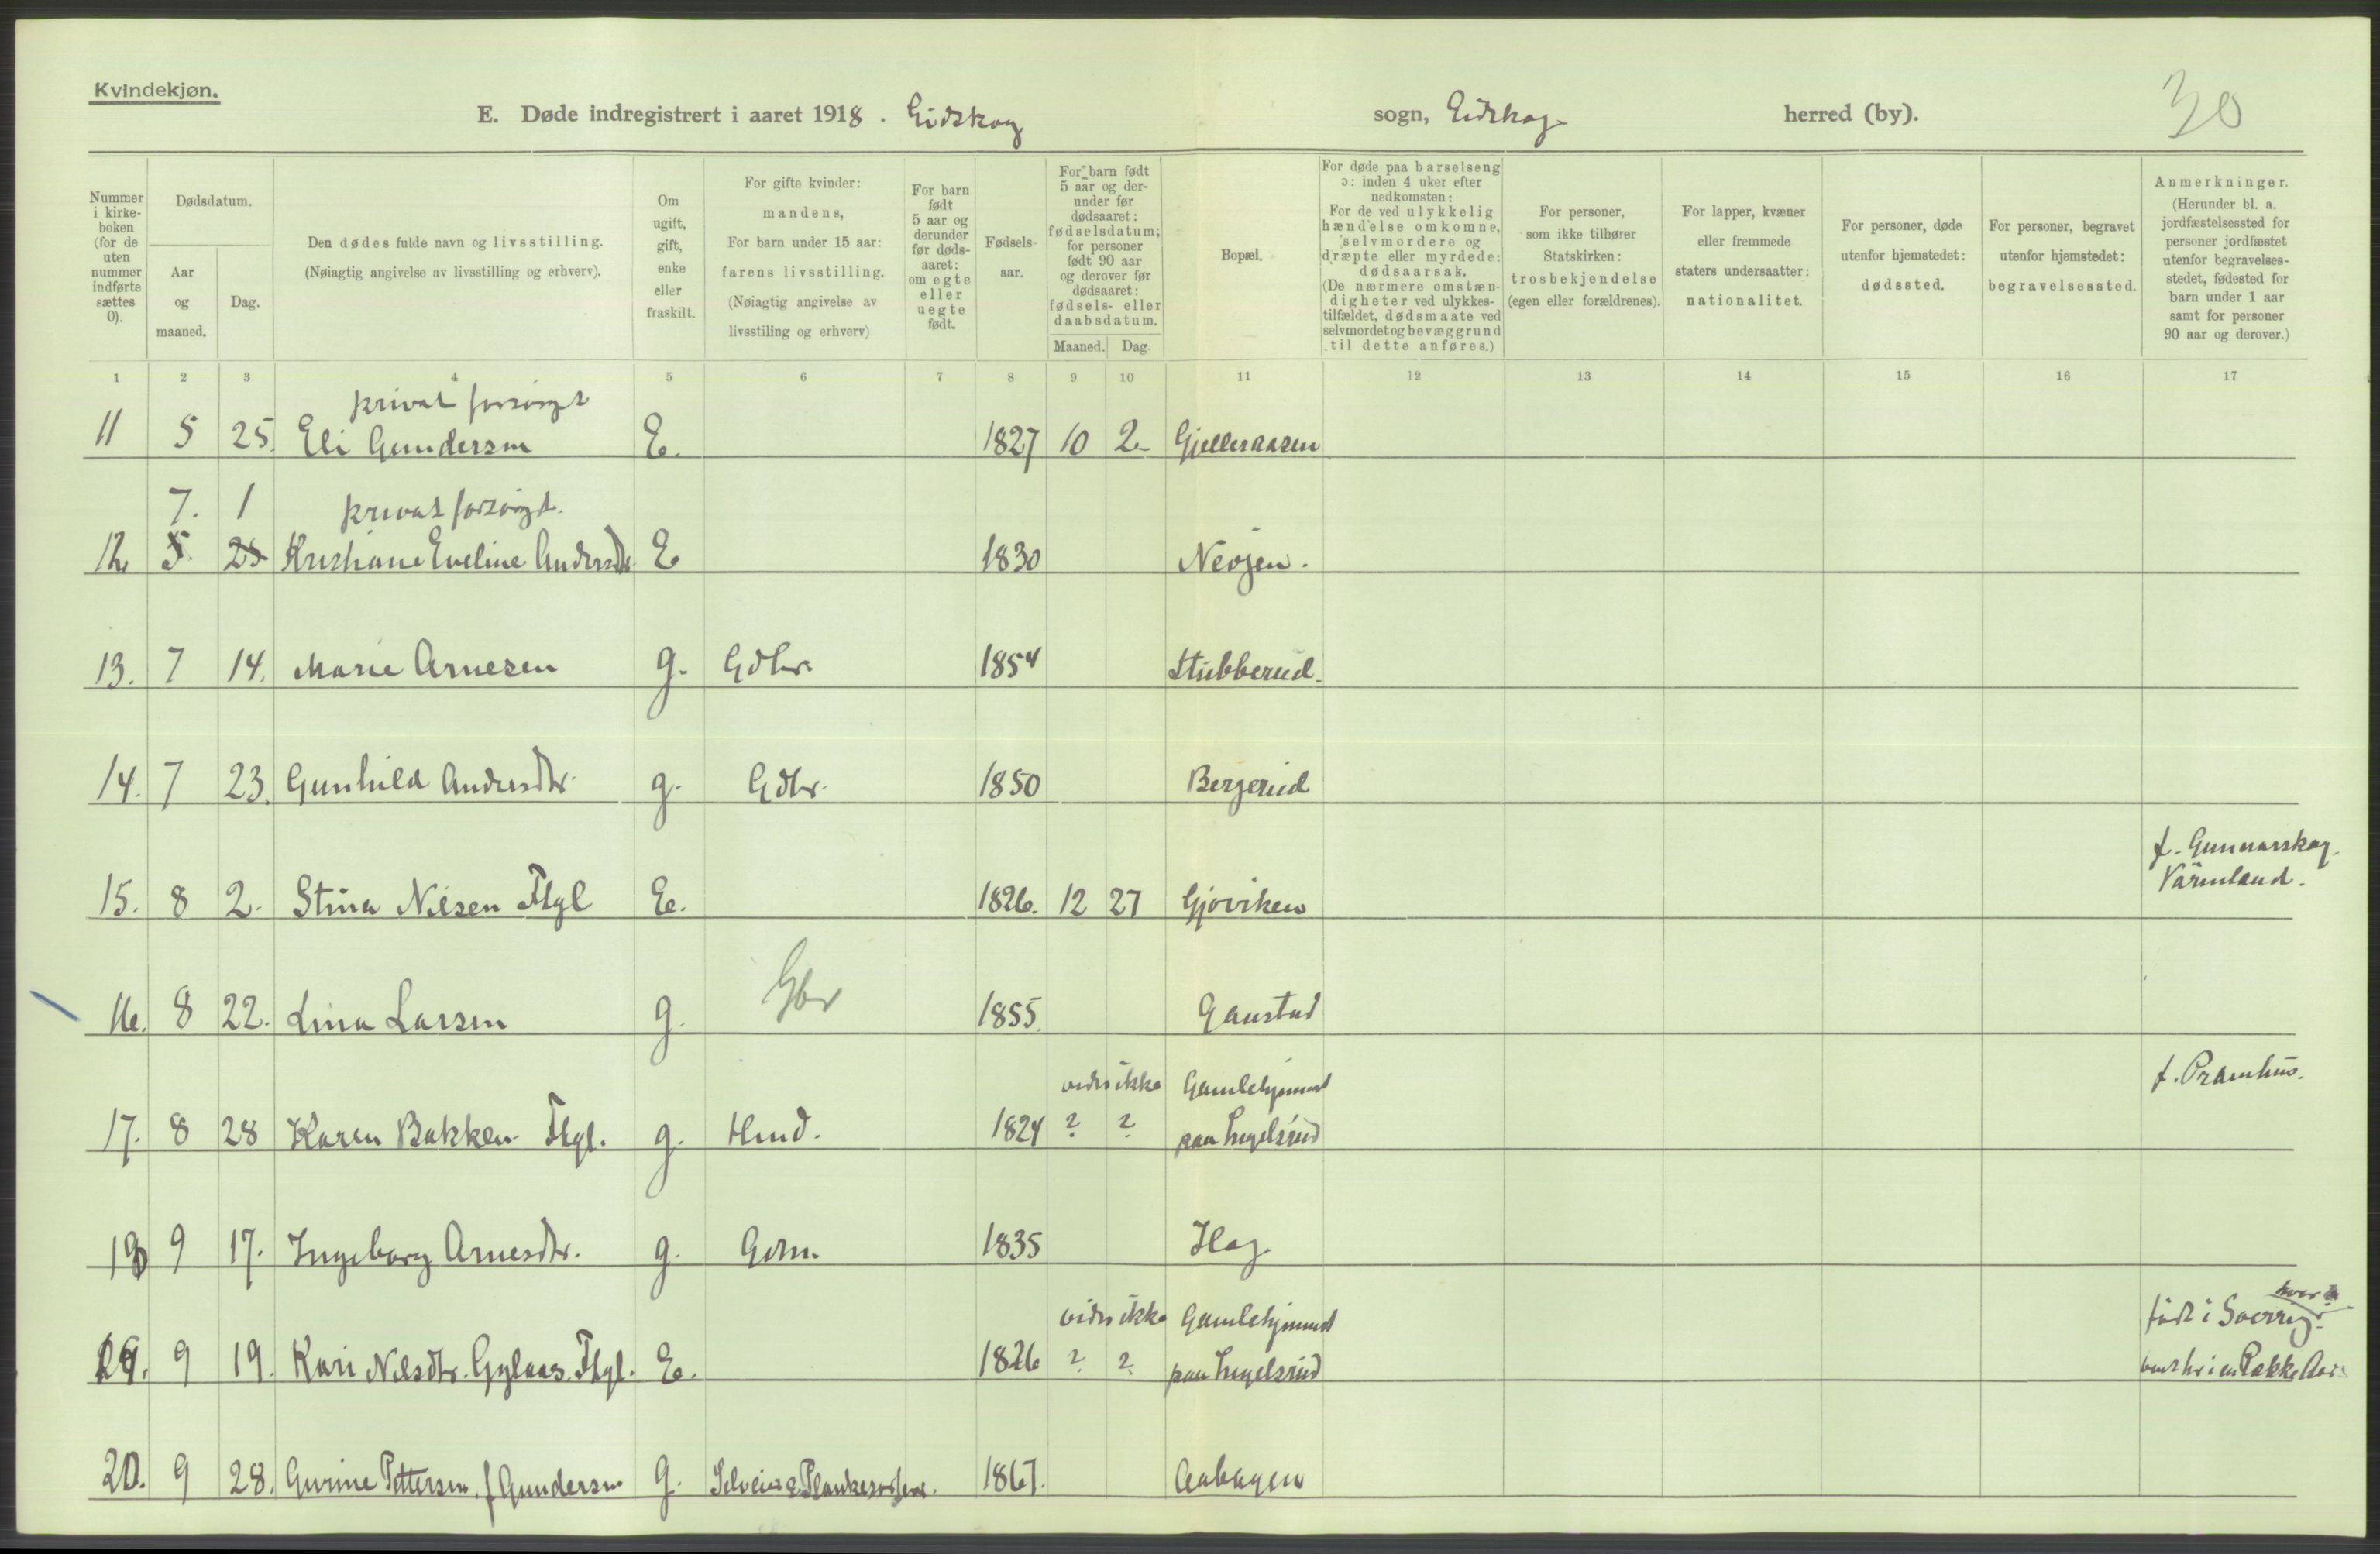 Kvindekjøn.
30
E. Døde indregistrert i aaret 1918. Eidskog sogn, Eidskog herred (by).
Nummer i kirke-boken (for de uten nummer indførte sættes 0).
Dødsdatum.
Aar og maaned.
Dag.
Den dødes fulde navn og livsstilling.
(Nøiagtig angivelse av livsstilling og erhverv).
Om ugift, gift, enke eller fraskilt.
For gifte kvinder: mandens,
For barn under 15 aar: farens livsstilling.
(Nøiagtig angivelse av livsstiling og erhverv)
For barn født 5 aar og derunder før døds-aaret: om egte eller uegte født.
Fødsels-aar.
For barn født 5 aar og der-under før dødsaaret: fødselsdatum; for personer født 90 aar og derover før dødsaaret: fødsels- eller daabsdatum.
Maaned. Dag.
Bopæl.
For døde paa barselseng ɔ: inden 4 uker efter nedkomsten:
For de ved ulykkelig hændelse omkomne, selvmordere og dræpte eller myrdede: dødsaarsak.
(De nærmere omstæn-digheter ved ulykkes-tilfældet, dødsmaate ved selvmordet og bevæggrund til dette anføres.)
For personer, som ikke tilhører Statskirken: trosbekjendelse (egen eller forældrenes).
For lapper, kvæner eller fremmede staters undersaatter: nationalitet.
For personer, døde utenfor hjemstedet: dødssted.
For personer, begravet utenfor hjemstedet: begravelsessted.
Anmerkninger.
(Herunder bl. a. jordfæstelsessted for personer jordfæstet utenfor begravelses-stedet, fødested for barn under 1 aar samt for personer 90 aar og derover.)
1 2 3 4 5 6 7 8 9 10 11 12 13 14 15 16 17
privat forsørget
11 5 25. Eli Gundersen E. 1827 10 2 Gjelleraasen
7. 1 privat forsørget.
12 5. 25 Kristiane Eveline Andersdtr. E 1830 Nevjen.
13. 7 14. Marie Arnesen g. Gdbr. 1854 Stubberud.
14. 7 23. Gunhild Andersdtr. g. Gdbr. 1850 Bergerud
f. Gunnarskog.
Värmland.
15. 8 2. Stina Nilsen Flgl E. 1826. 12 27 Gjøviken
16. 8 22. Lina Larsen g. Gbr 1855. Gaustad
vides ikke Gamlehjemmet f. Pramhus.
17. 8 28 Karen Bakken Flgl. g. Hmd. 1824 ? ? paa Ingelsrud
18 9 17. Ingeborg Arnesdtr. g. 1835 Hag.
vides ikke Gamlehjemmet født i Sverrig.
19. 9 19. Kari Nilsdtr. Gylaas. Flgl. E. 1826 ? ? paa Ingelsrud
20. 9 28. Gurine Pettersen f Gundersen g. Selveier & 1867. Aabogen